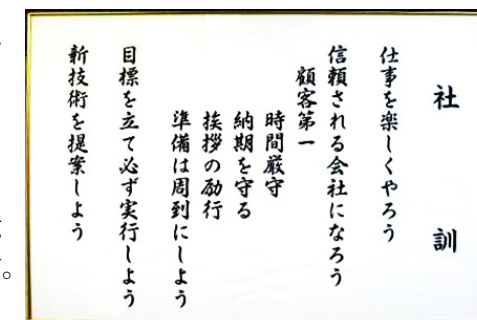 社訓
仕事を楽しくやろう
信頼される会社になろう
顧客第一
時間厳守
納期を守る
挨拶の励行
準備は周到にしよう
目標を立て必ず実行しよう
新技術を提案しよう